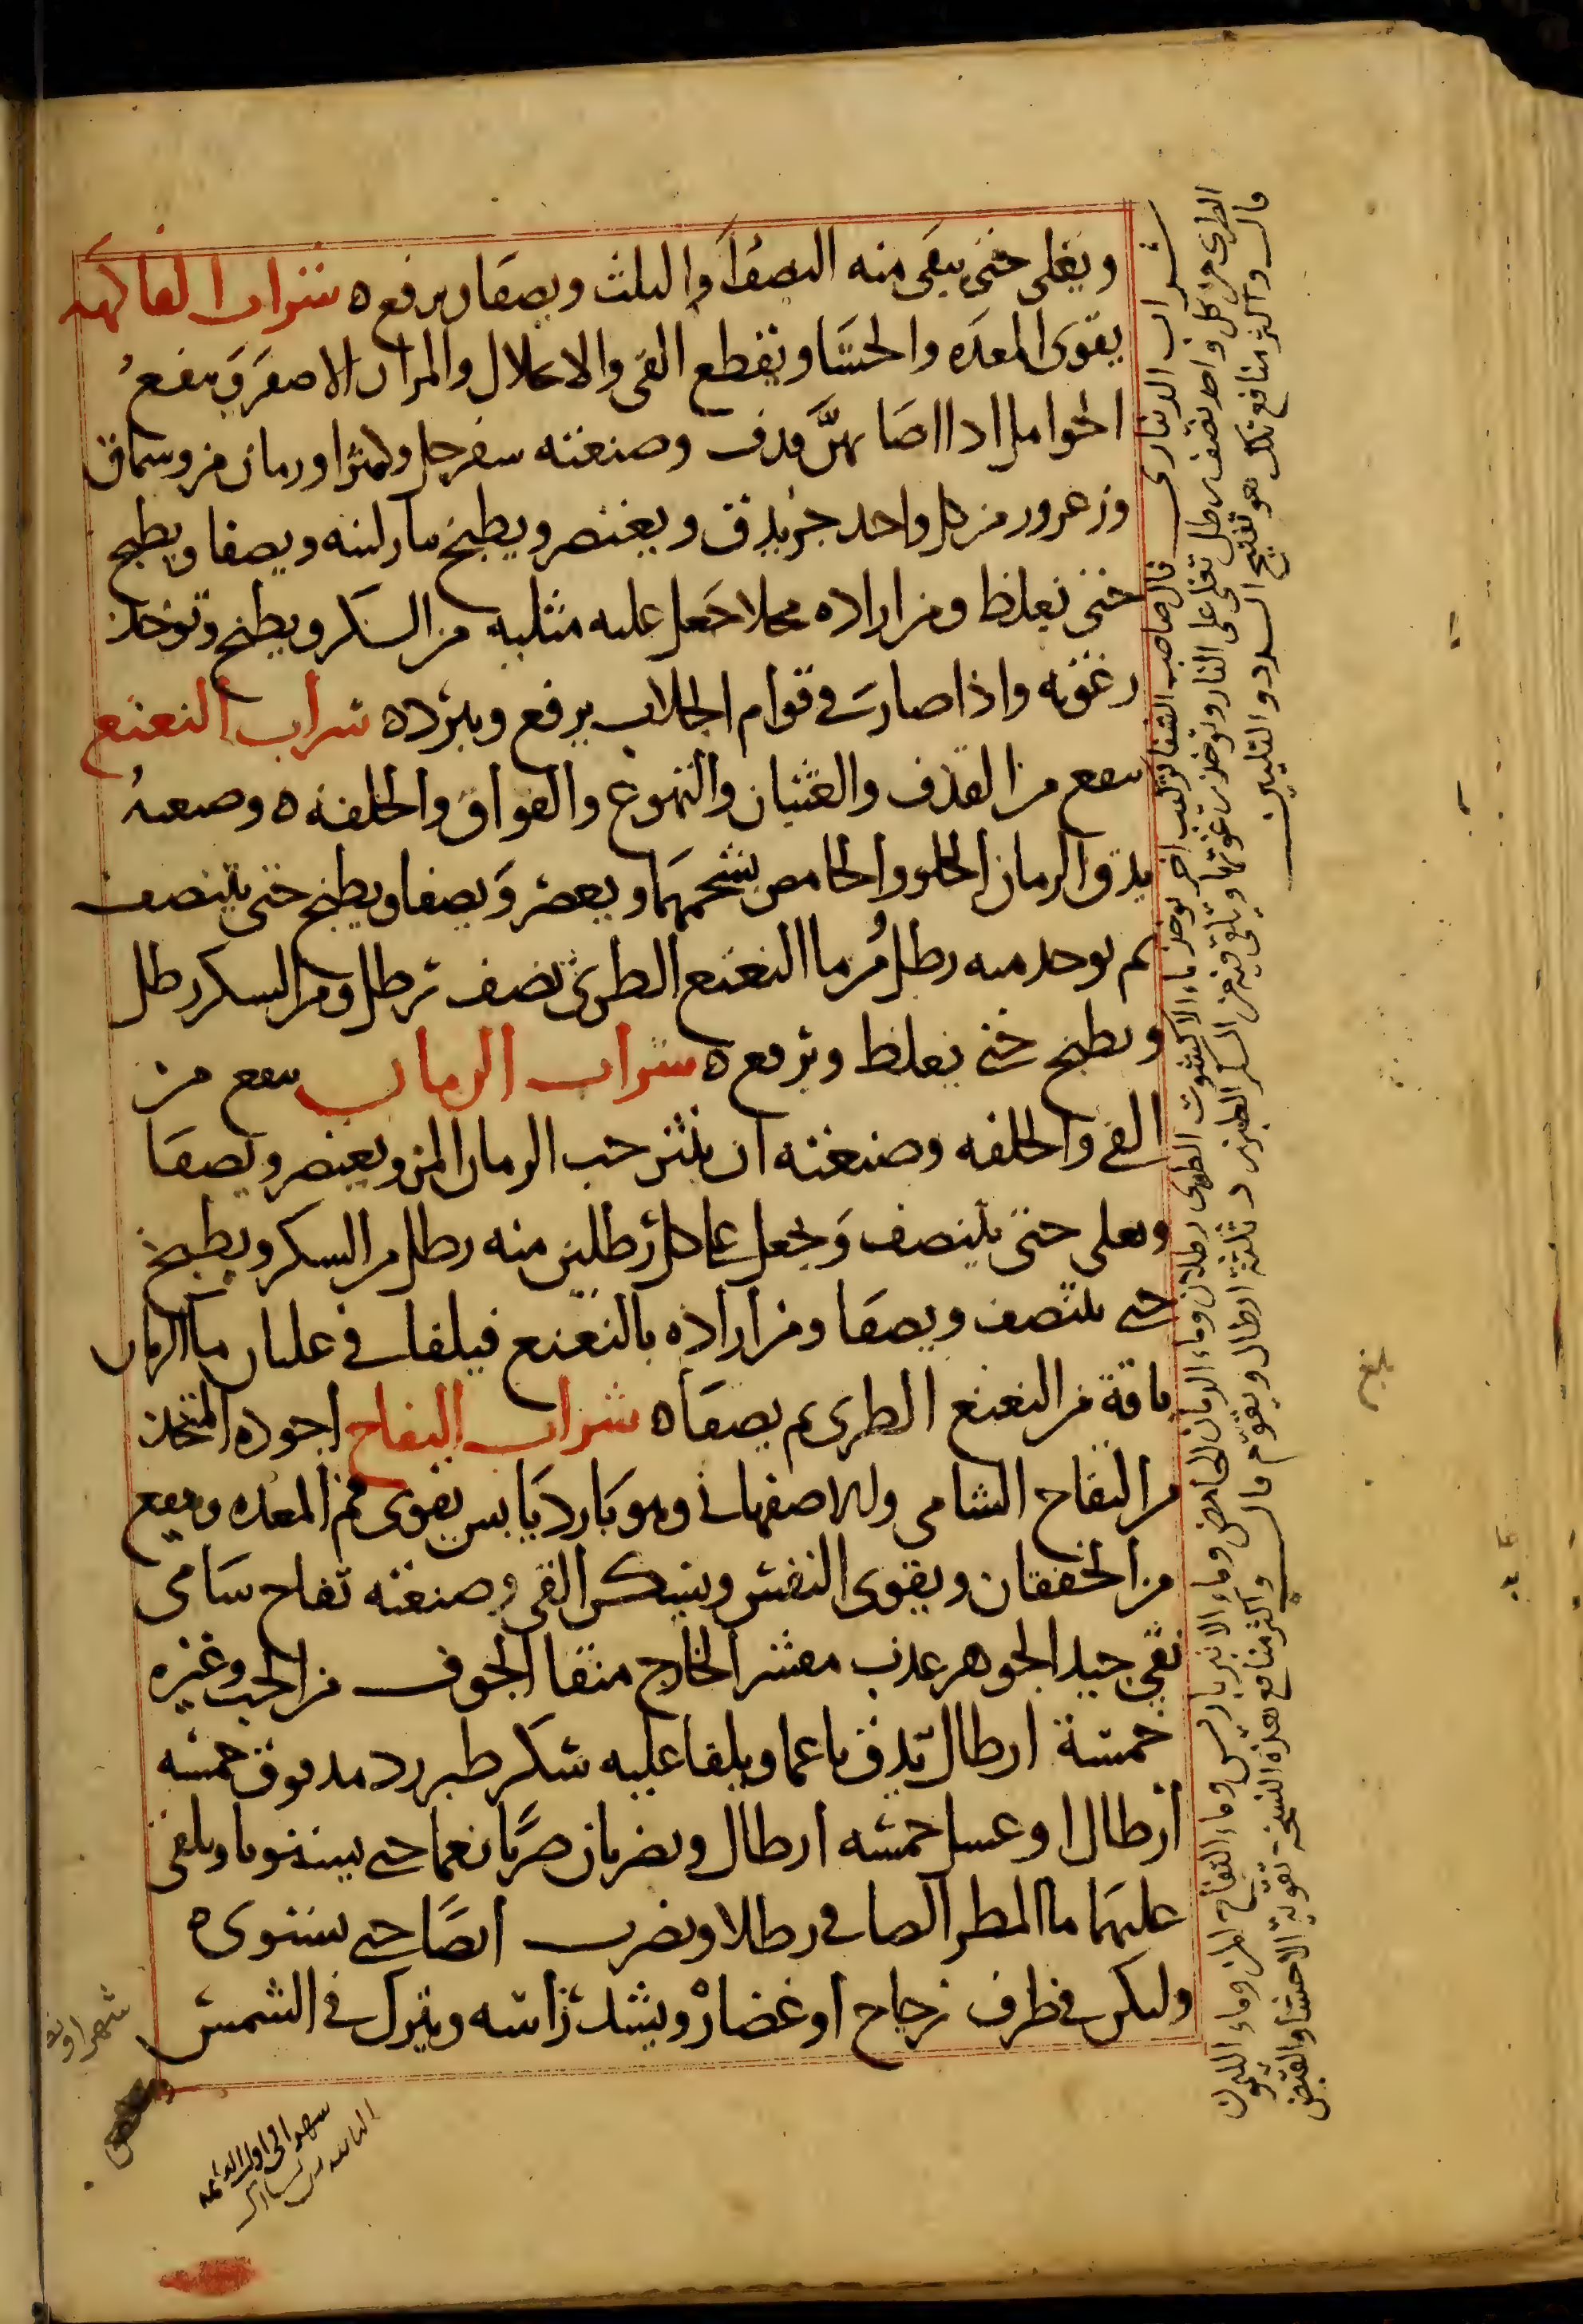 ويغلى حتى يبقى منه النصف او الثلث ويصفا ويرفع ه شراب الفاكهه
يقوى المعده والحشا ويقطع القى والانحلال والمرار الاصفر وينفع
الحوامل اذا اصابهن قذف وصنعته سفرجل وكمثرا ورمان مز وسماق
وزعرور من كل واحد جز يدق ويعتصر ويطبخ بنار لينه ويصفا ويطبخ
حتى يغلظ ومن اراده محلا جعل عليه مثليه من السكر ويطبخ وتوخذ
رغوته واذا صار فى قوام الجلاب يرفع ويبرد ه شراب النعنع
ينفع من القذف والغثيان والتهوع والفواق والخلفه ه وصنعته
يدق الرمان الحلو والحامض بشحمهما ويعصر ويصفا ويطبخ حتى ينتصف
ثم يوخذ منه رطل ومن ما النعنع الطرى نصف رطل ومن السكر رطل
ويطبخ حتى يغلظ ويرفع ه شراب الرمان ينفع من
القى والخلفه وصنعته ان ينثر حب الرمان المز ويعتصر ويصفا
ويغلى حتى ينتصف ويجعل على كل رطلين منه رطل من السكر ويطبخ
حتى ينتصف ويصفا ومن اراده بالنعنع فيلقا فى غليان ما الرمان
باقة من النعنع الطرى ثم يصفا ه شراب التفاح اجوده المتخذ
من التفاح الشامى والاصفهانى وهو بارد يابس يقوى فم المعده وينفع
من الخفقان ويقوى النفس ويسكن القى وصنعته تفاح شامى
نقى جيد الجوهر عذب مقشر الخارج منقا الجوف من الحب وغيره
خمسة ارطال يدق ناعما ويلقا عليه سكر طبرزد مدقوق خمسه
ارطال او عسل خمسه ارطال ويضربان ضربا نعما حتى يستويا ويلقى
عليهما ما المطر الصافى رطلا ويضرب ايضا حتى يستوى ه
وليكن فى ظرف زجاج او غضار ويشد راسه ويترك فى الشمس
شراب الدينارى قال صاحب الشفا تركيب اخر يوخذ ماء الاكشوث الطرى رطلان وماء الرمان الحامض وماء الانبرباريس وماء التفاح المز وماء الليمون
الطرى من كل واحد نصف رطل تغلى على النار وتوخذ رغوتها ويلقى فيه من السكر الطبرزد ثلثة ارطال ويقوم قال واكثر منافع هذه النسخة تقوية الاحشا والقبض
قال واكثر منافع تلك هو تفتيح السدد والتليين
بلغ